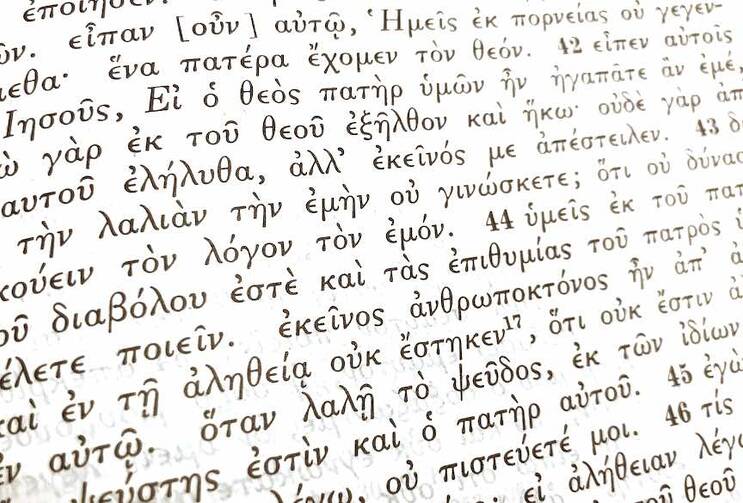 ἐποιήσεν.
ῶν. εἶπαν [οὖν] αὐτῷ, Ἡμεῖς ἐκ πορνείας οὐ γεγεν-
μεθα· ἕνα πατέρα ἔχομεν τὸν θεόν. 42 εἶπεν αὐτοῖς
Ἰησοῦς, Εἰ ὁ θεὸς πατὴρ ὑμῶν ἦν ἠγαπᾶτε ἂν ἐμέ,
ὼ γὰρ ἐκ τοῦ θεοῦ ἐξῆλθον καὶ ἥκω· οὐδὲ γὰρ ἀπ
αυτοῦ ἐλήλυθα, ἀλλ’ ἐκεῖνός με ἀπέστειλεν. 43 δ
τὴν λαλιὰν τὴν ἐμὴν οὐ γινώσκετε; ὅτι οὐ δύνασ
κούειν τὸν λόγον τὸν ἐμόν. 44 ὑμεῖς ἐκ τοῦ πατ
οῦ διαβόλου ἐστὲ καὶ τὰς ἐπιθυμίας τοῦ πατρὸς ὑ
έλετε ποιεῖν. ἐκεῖνος ἀνθρωποκτόνος ἦν ἀπ’ ἀ
καὶ ἐν τῇ ἀληθείᾳ οὐκ ἔστηκεν¹⁷, ὅτι οὐκ ἔστιν ἀ
ἐν αὐτῷ. ὅταν λαλῇ τὸ ψεῦδος, ἐκ τῶν ἰδίων
ψεύστης ἐστὶν καὶ ὁ πατὴρ αὐτοῦ. 45 ἐγὼ
λέγω, οὐ πιστεύετέ μοι. 46 τίς
εἰ ἀλήθειαν λέγω
θεοῦ